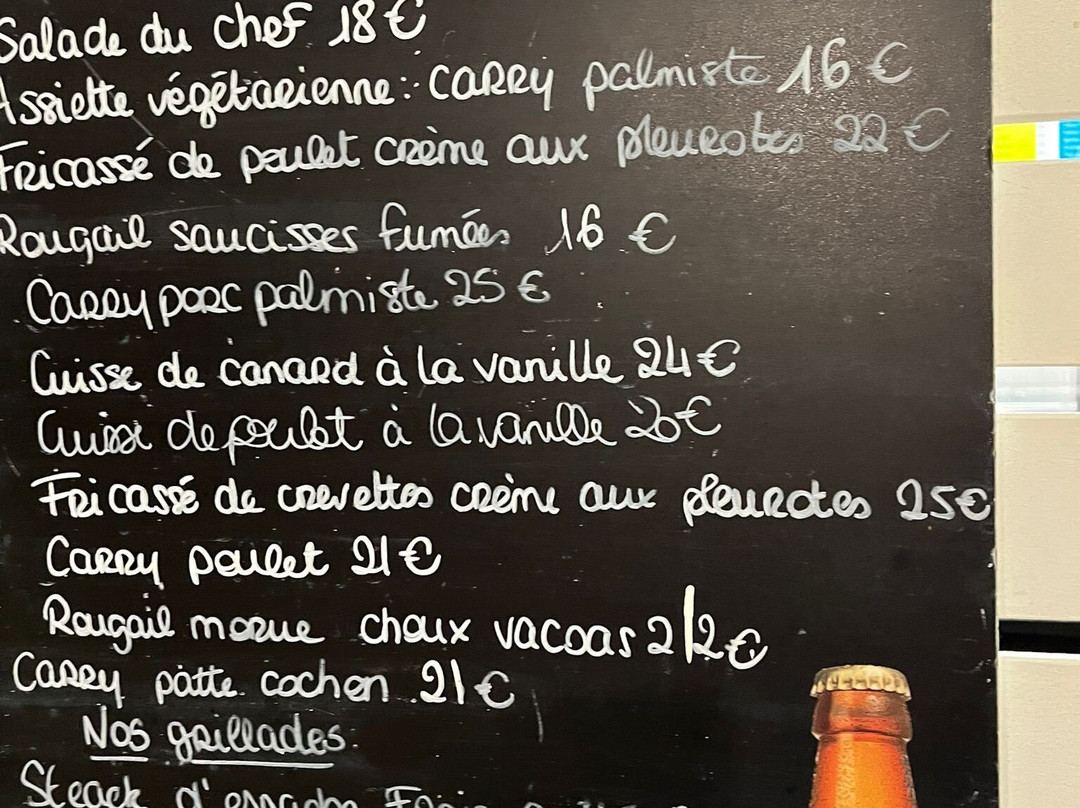 Salade du chef 18€
Assiette végétarienne: CARRY palmiste 16 €
Fricassé de poulet crème aux pleurotes 22 €
Rougail saucisses fumées 16 €
CARRY porc palmiste 25 €
Cuisse de canard à la vanille 24€
Cuisse de poulet à la vanille 20€
Fricassé de crevettes crème aux pleurotes 25€
CARRY poulet 21€
Rougail morue choux vacoas 2|2€
CARRY patte cochon 21€
Nos grillades.
Steack d'espadon